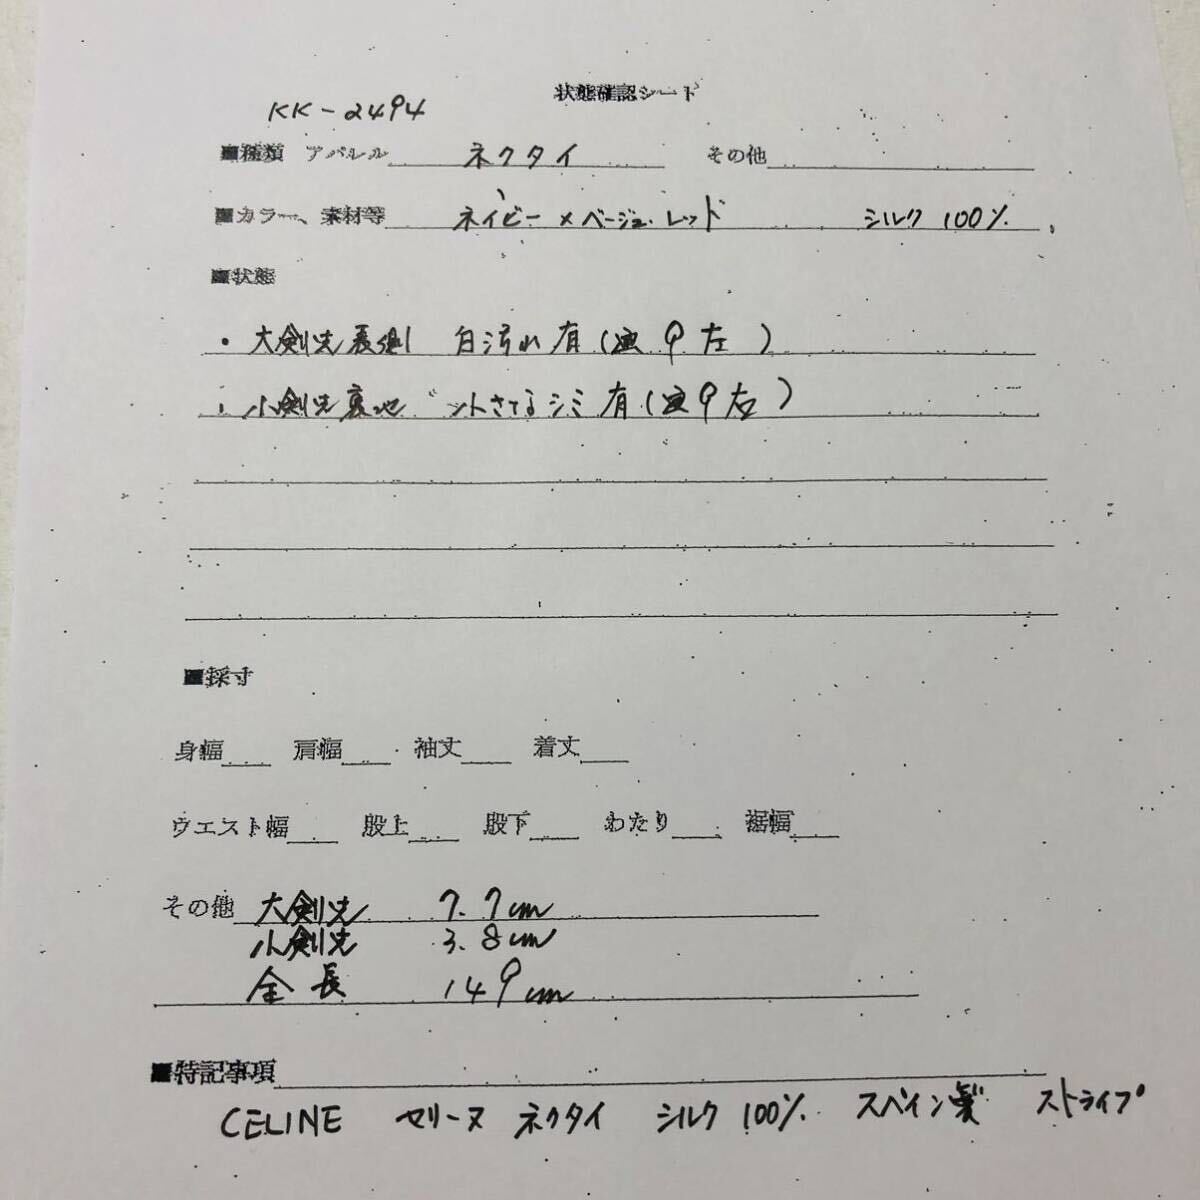 状態確認シート
KK-2494
■種類 アパレル ネクタイ その他
■カラー、素材等 ネイビー×ベージュ・レッド シルク 100%
■状態
・大剣先裏側 白汚れ有(画9左)
・小剣先裏地 シミ有(画9右)
■採寸
身幅 肩幅 袖丈 着丈
ウエスト幅 股上 股下 わたり 裾幅
その他 大剣先 7.7cm
小剣先 3.8cm
全長 149cm
■特記事項
CELINE セリーヌ ネクタイ シルク 100% スペイン製 ストライプ